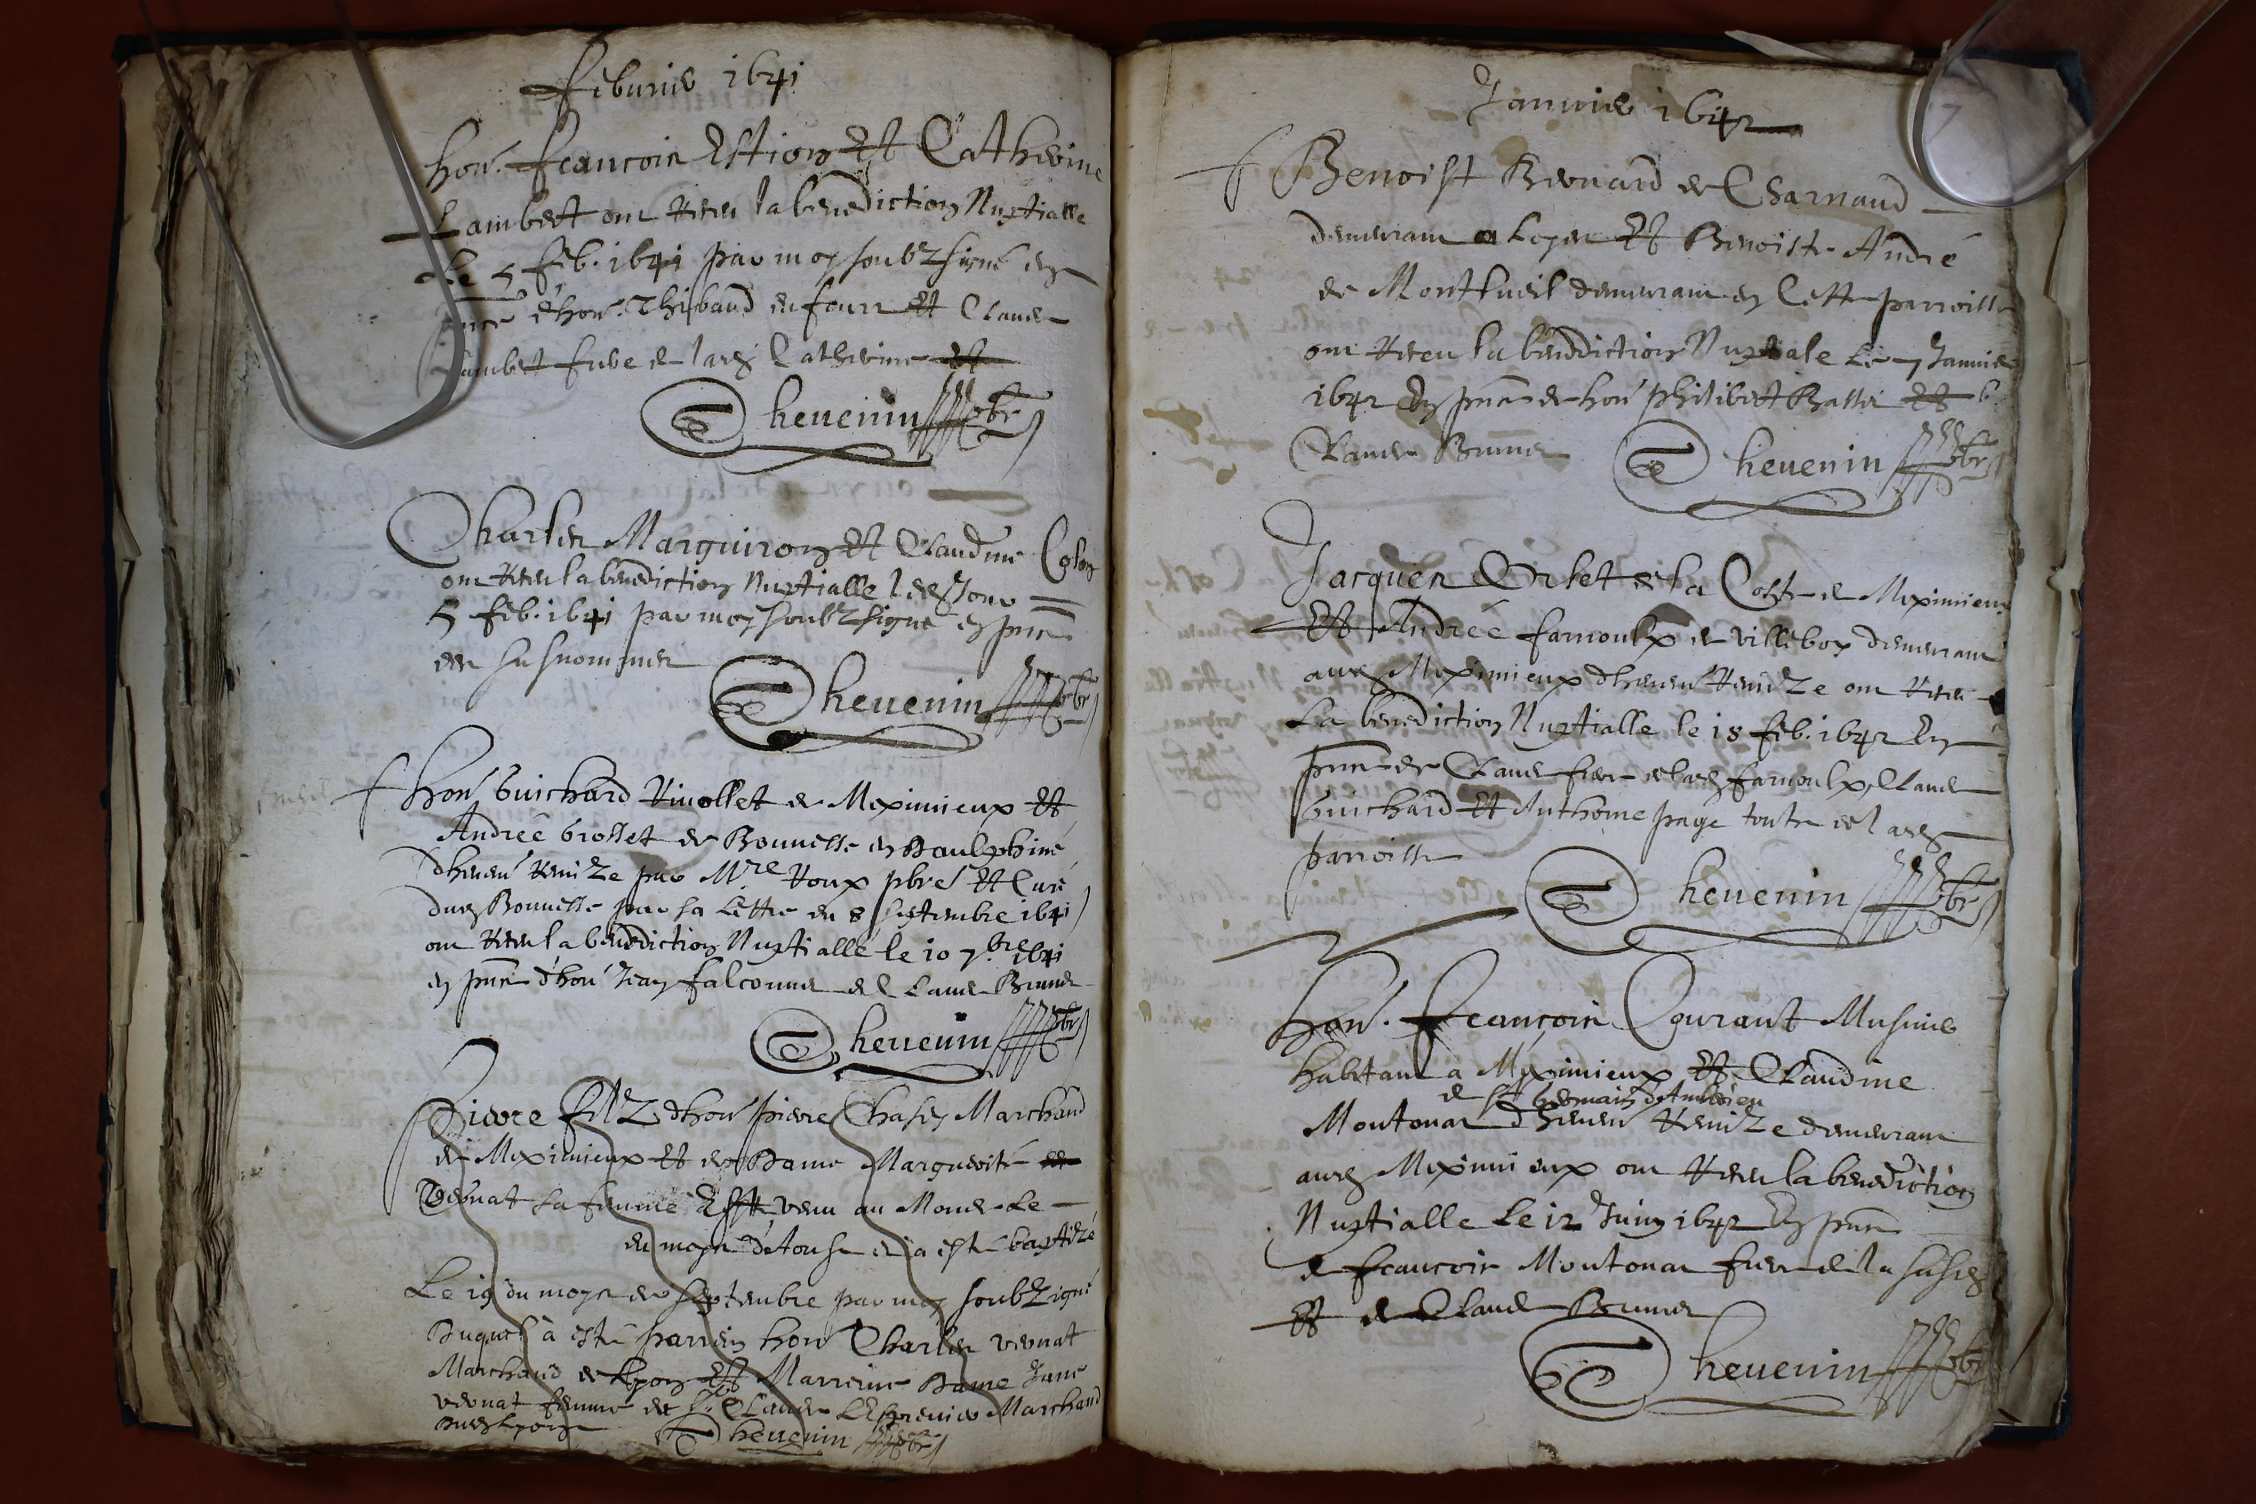 Feburier 1641
hon. Francois Estion Et Catherine
Lambert ont Receu la benediction Nuptialle
Le 5 feb. 1641 par moy soubzsigné en
pnce d'hon. Thibaud du four et Claude
Lambert frere de lad. Catherine et
Thevenin pbr
Charles Marguiron Et Claudine Colon
ont Receu la benediction Nuptialle led. Jour
5 feb. 1641 par moy soubzsigne en pnce
des susnommes
Thevenin pbr
hon. Guichard Rivollet de Meximieux Et
Andree Grosset de Bouvesse en Daulphiné
dheuem. Remize par Mre Roux pbre Et Curé
dud. Bouvesse par sa lettre du 8 septembre 1641
ont Receu la benediction Nuptialle le 10 7.bre 1641
en pnce d'hon. Jean falconnet de Claude Brunet
Thevenin pbr
Pierre filz dhon. pierre Chasey Marchand
de Meximieux Et de Dame Marguerite de
Vernat sa femme Est venu au Monde Le
du moys d'Aoust et a esté baptizé
Le 19 du moys de septembre par moy soubzigné
Duquel à esté parrein hon. Charles vernat
Marchand de Lyon Et Marreine Dame Jane
vernat femme de Sr. Claude Marchand
dud. Lyon
Thevenin pbr
Janvier 1642
Benoist Bernard de Charnaud
demeurant a Loyes Et Benoiste André
de Montlueil demeurant en cette parroisse
ont Receu la benediction Nuptiale Le 7 Janvier
1642 En pnce de hon. philibert Battie Et
Claude Brunet
Thevenin pbr
Jacques Orlet de la Coste de Meximieux
Et Andree farnoulx de villeboy demeurant
aud. Meximieux dheuem. Remize ont Receu
La benediction Nuptialle le 18 feb. 1642 En
pnce de Claude frere de lad. farnoulx Claude
Guichard Et Anthoine page touts de lad.
parroisse
Thevenin pbr
hon. Francois Courant Musnier
habitant a Meximieux Et Claudine
de St Germain d'Amberieu
Moutonat dheuem. Remize demeurant
aud. Meximieux ont Receu la benediction
Nuptialle Le 12 Juin 1642 En pnce
de francois Moutonat frere de la susd.
Et de Claude Brunet
Thevenin pbr